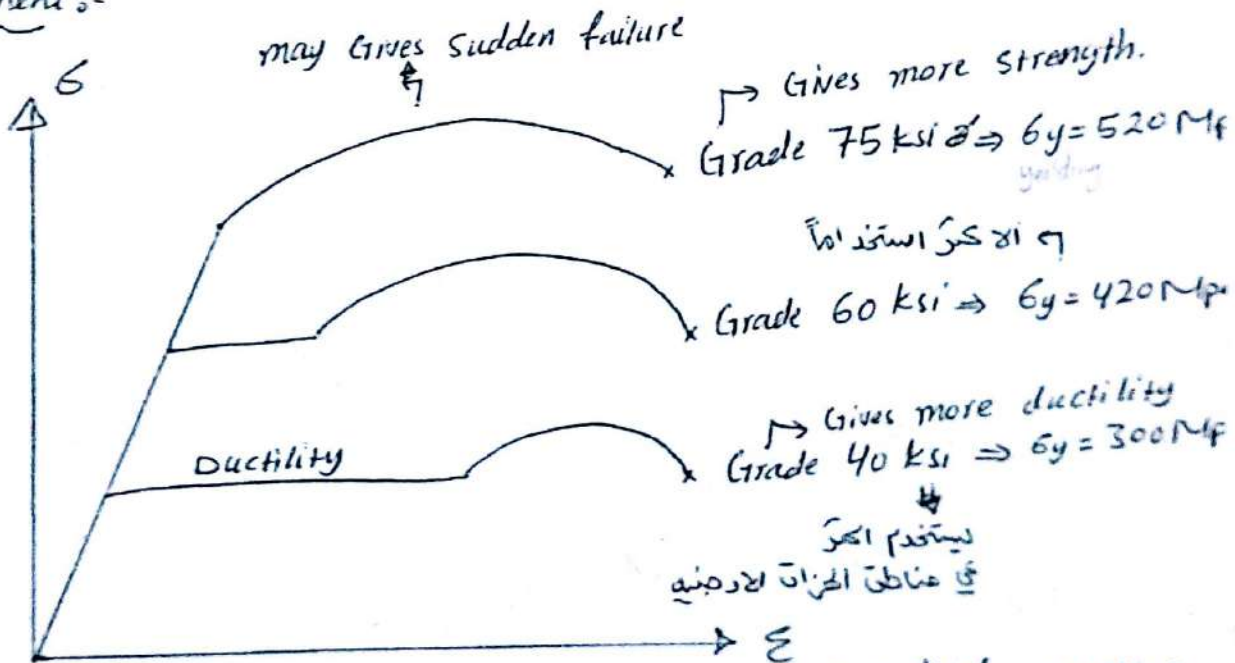 may Gives Sudden failure
б
Gives more strength.
Grade 75 ksi ⇒ бy = 520 Mp
yielding
الاكثر استخداماً
Grade 60 ksi ⇒ бy = 420 Mp
Gives more ductility
Ductility
Grade 40 ksi ⇒ бy = 300 Mp
يستخدم اكثر
في مناطق الهزات الارضيه
ε